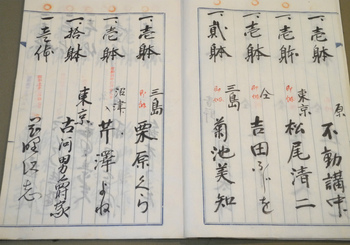 一、壱躰 原 不動講中
一、壱躰 東京 松尾清二
一、壱躰 仝 吉田ふじを
一、貮躰 三島 菊池美知
一、壱躰 三島 栗原くら
一、壱躰 沼津 芹澤よね
一、拾躰 東京 古河男爵家
一、壱体